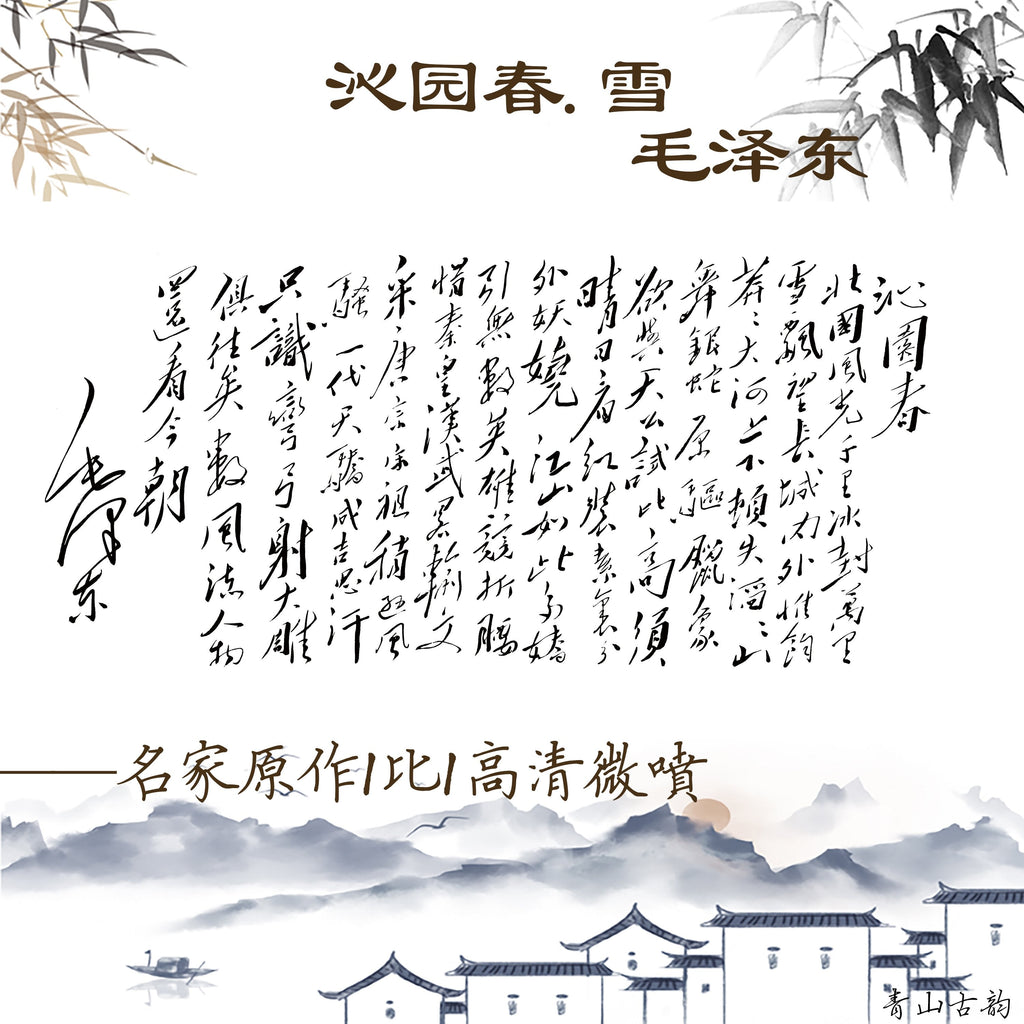 沁园春.雪
毛泽东
沁園春
北國風光千里冰封萬里
雪飄望長城内外惟餘
莽〻大河上下頓失滔〻山
舞銀蛇原驅臘象
欲與天公試比高須
晴日看紅裝素裹分
外妖嬈江山如此多嬌
引無數英雄競折腰
惜秦皇漢武略輸文
采唐宗宋祖稍遜風
騷一代天驕成吉思汗
只識彎弓射大雕
俱往矣數風流人物
還看今朝
毛澤東
名家原作/比/高清微噴
青山古韵